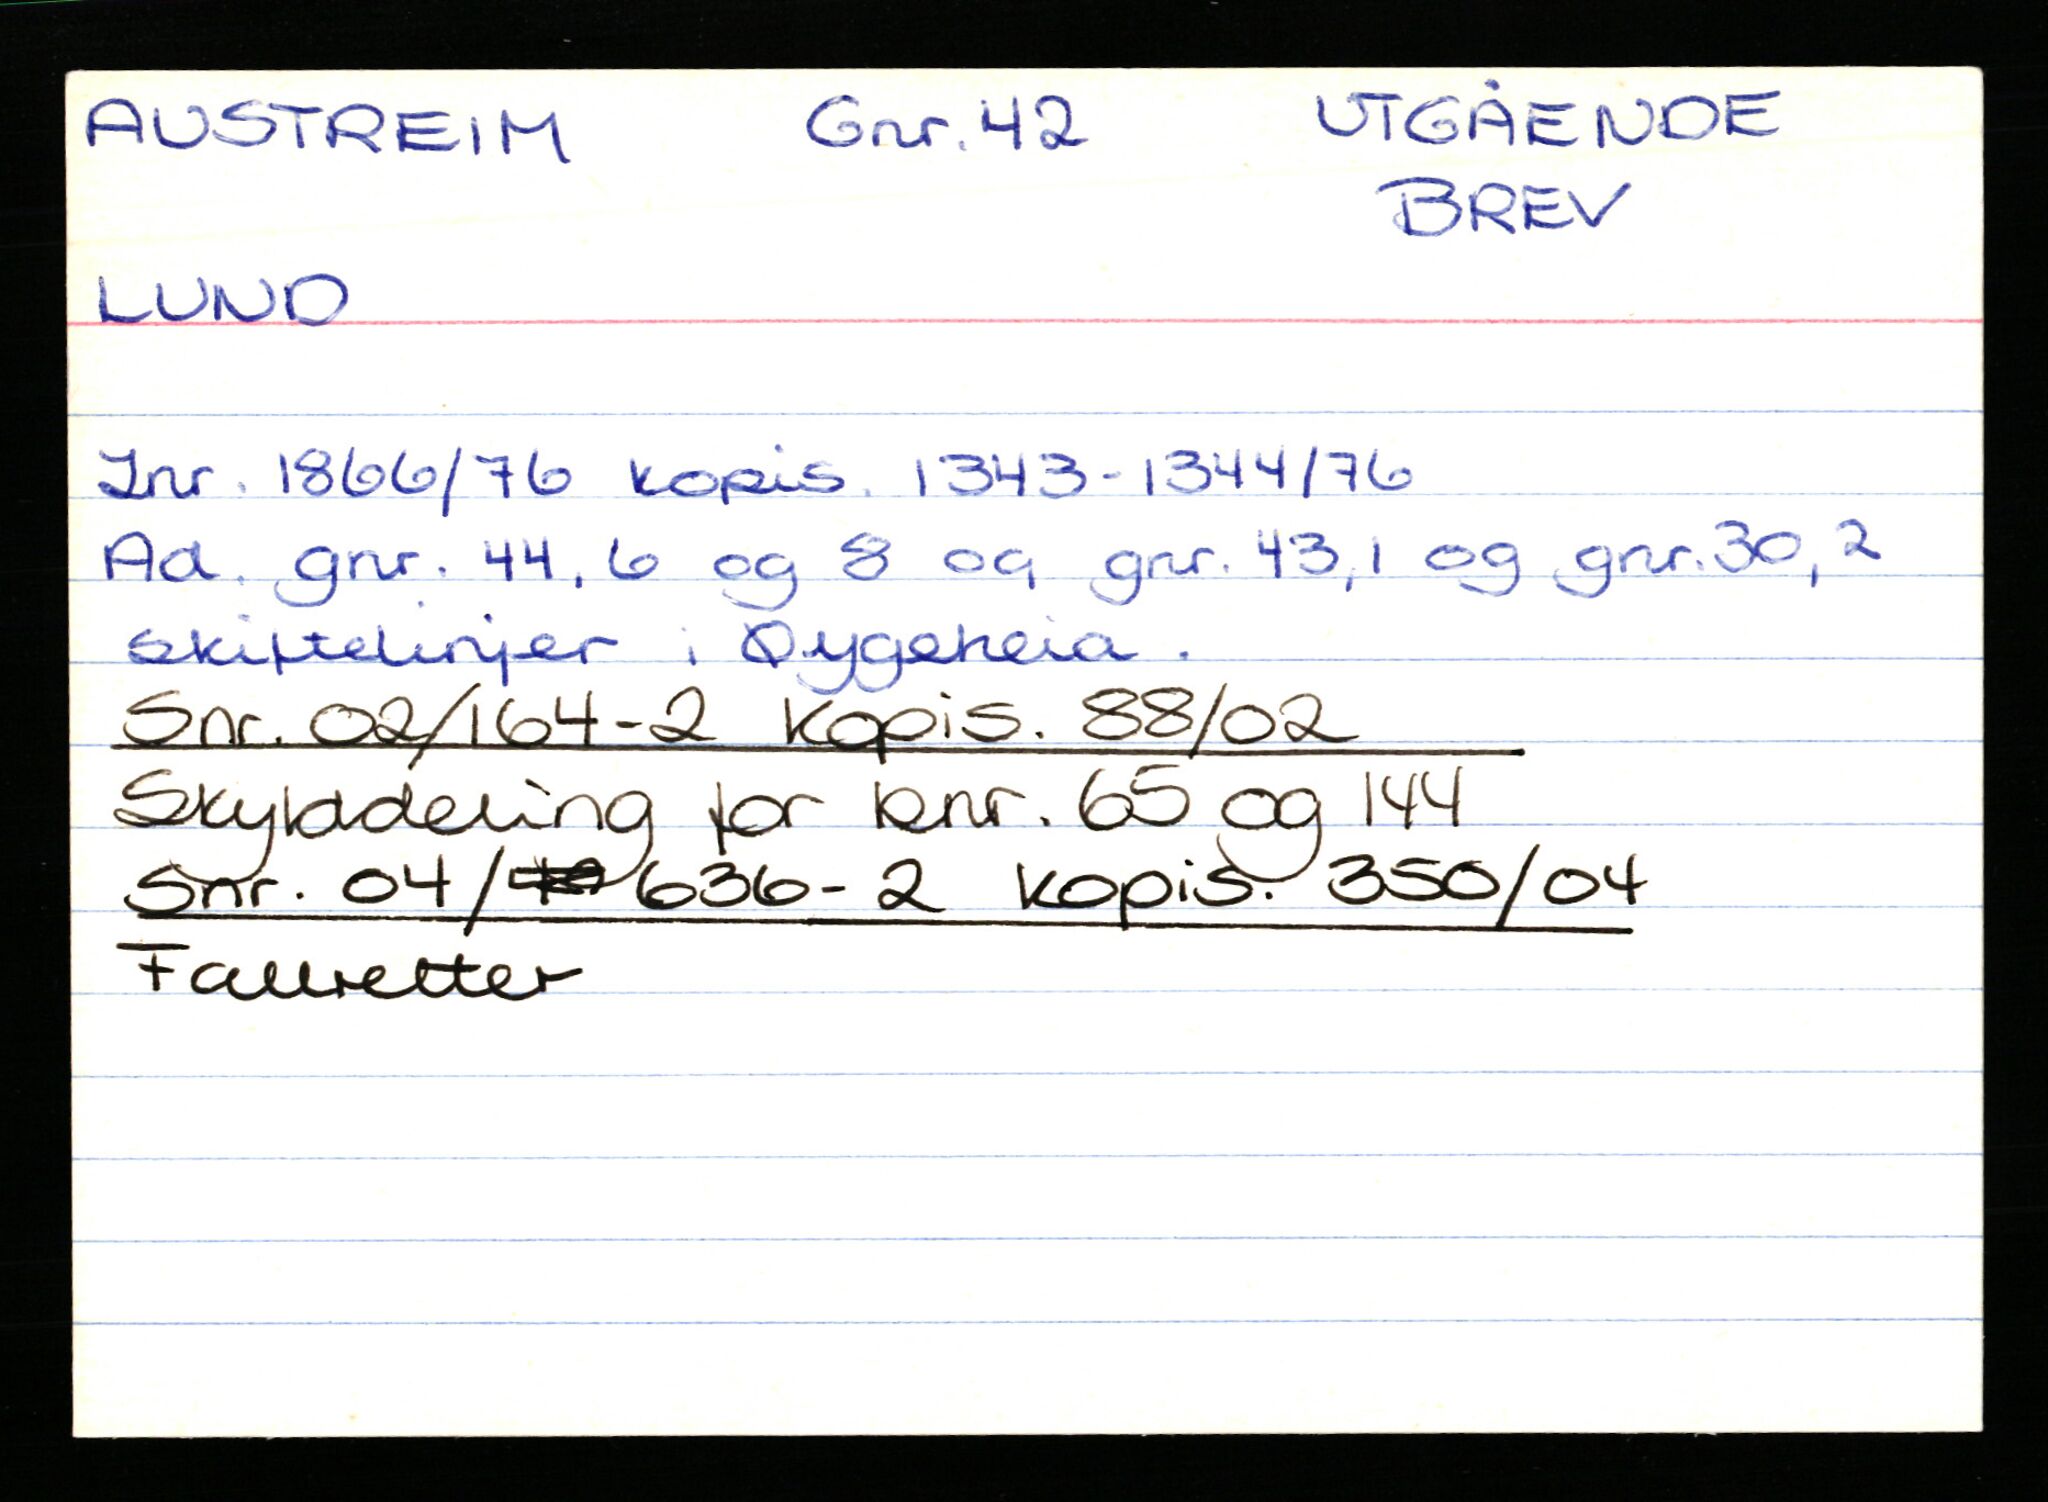 AUSTREIM Gnr. 42 UTGÅENDE
BREV
LUND
Jnr. 1866/76 kopis. 1343-1344/76
Ad. gnr. 44,6 og 8 og gnr. 43,1 og gnr. 30,2
skiftelinjer i Øygeheia.
Snr. 02/164-2 Kopis. 88/02
Skylddeling for bnr. 65 og 144
Snr. 04/ 636-2 kopis. 350/04
Fallretter